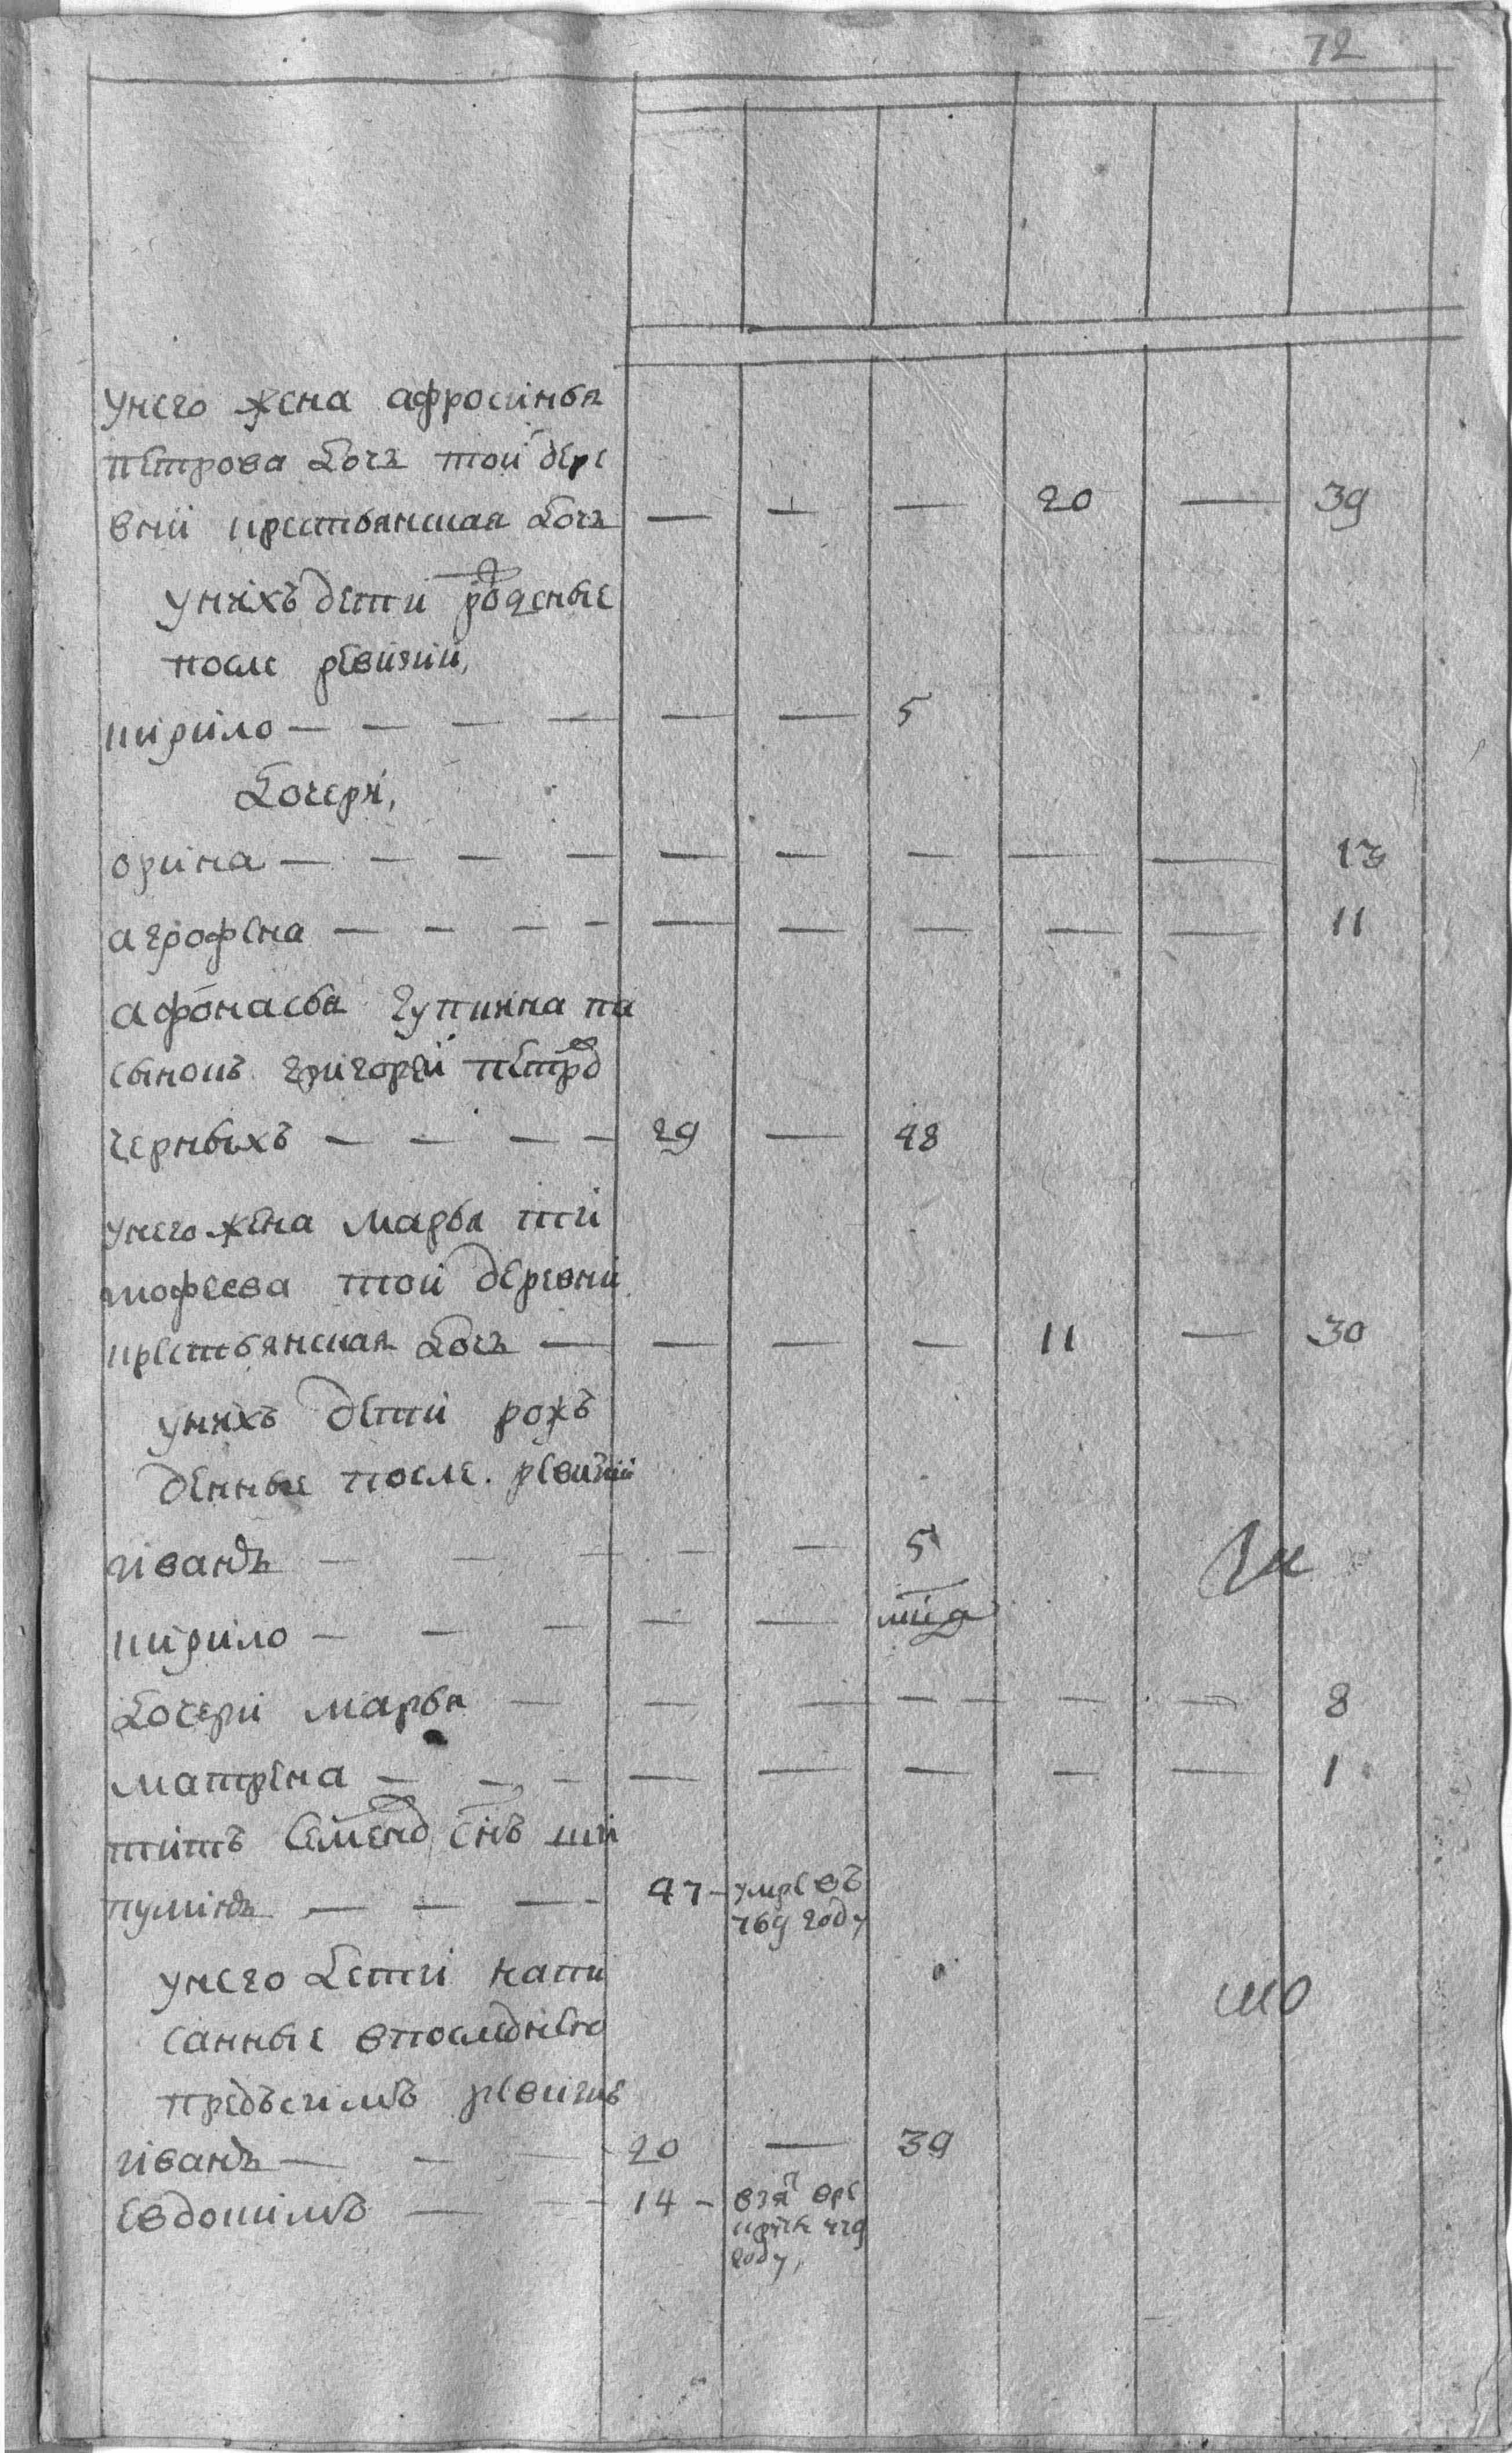 72
унего жена афросинья
петрова дочь той дере
вни крестьянская дочь — — — 20 — 39
унихъ дети рожденые
после ревизии,
кирило — — — — — — 5
дочери,
орина — — — — — — — — — 13
агрофена — — — — — — — — — 11
афонасья чупина па
сынокъ григорей петров
черныхъ — — — — 29 — 48
унего жена марья ти
мофеева той деревни
крестьянская дочь — — — — 11 — 30
унихъ дети рожъ
денные после. ревизии
иванъ — — — — — 5
кирило — — — — —
дочери марья — — — — — — — 8
матрена — — — — — — — — 1
титъ семенов снъ ши
пулинъ — — — — 47 — умре въ
769 году
унего дети напи
санные впоследнею
предъсимъ ревизию
иванъ — — — 20 — 39
евдокимъ — — — 14 — взят вре
круты
году,